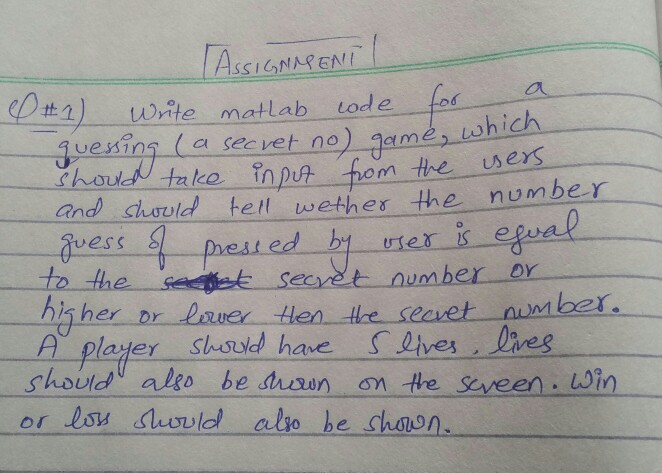 ASSIGNMENT
Q#1) Write matlab code for a
guessing (a secret no) game, which
should take input from the users
and should tell wether the number
guess & pressed by user is equal
to the secret number or
higher or lower then the secret number.
A player should have 5 lives, lives
should also be shown on the screen. Win
or loss should also be shown.